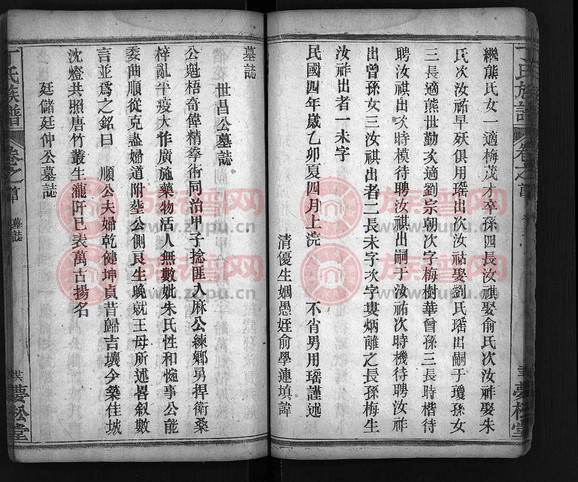 繼葉氏女一適梅茂才卒孫四長汝祺娶俞氏次汝祚娶朱
氏次汝祐早殀俱用瑶出次汝祺娶劉氏瑶出嗣于瓊孫女
三長適熊世勤次適劉宗朝次字梅樹華曾孫三長時楷待
聘汝祺出次時模待聘汝祺出嗣于汝祐次時機待聘汝祚
出曾孫女三汝祺出者二長未字次字婁炳離之長孫梅生
汝祚出者一未字
民國四年歲乙卯夏四月上浣 不肖男用瑶謹述
清優生姻愚姪俞學連填諱
墓誌
世昌公墓誌
公魁梧奇偉精拳術同治甲子捻匪入麻公練鄉男捍衛桑
梓亂平疫大作廣施藥物活人無數妣朱氏性和惋事公能
委曲順從克盡婦道附塋公側艮生晚就王母所述畧叙數
言並爲之銘曰 順公夫婦乾健坤貞昔歸吉壤今築佳城
沈燈共照唐竹叢生瀧阡已表萬古揚名
廷儲廷仲公墓誌
丁氏族譜
卷之首
墓誌
夢松堂